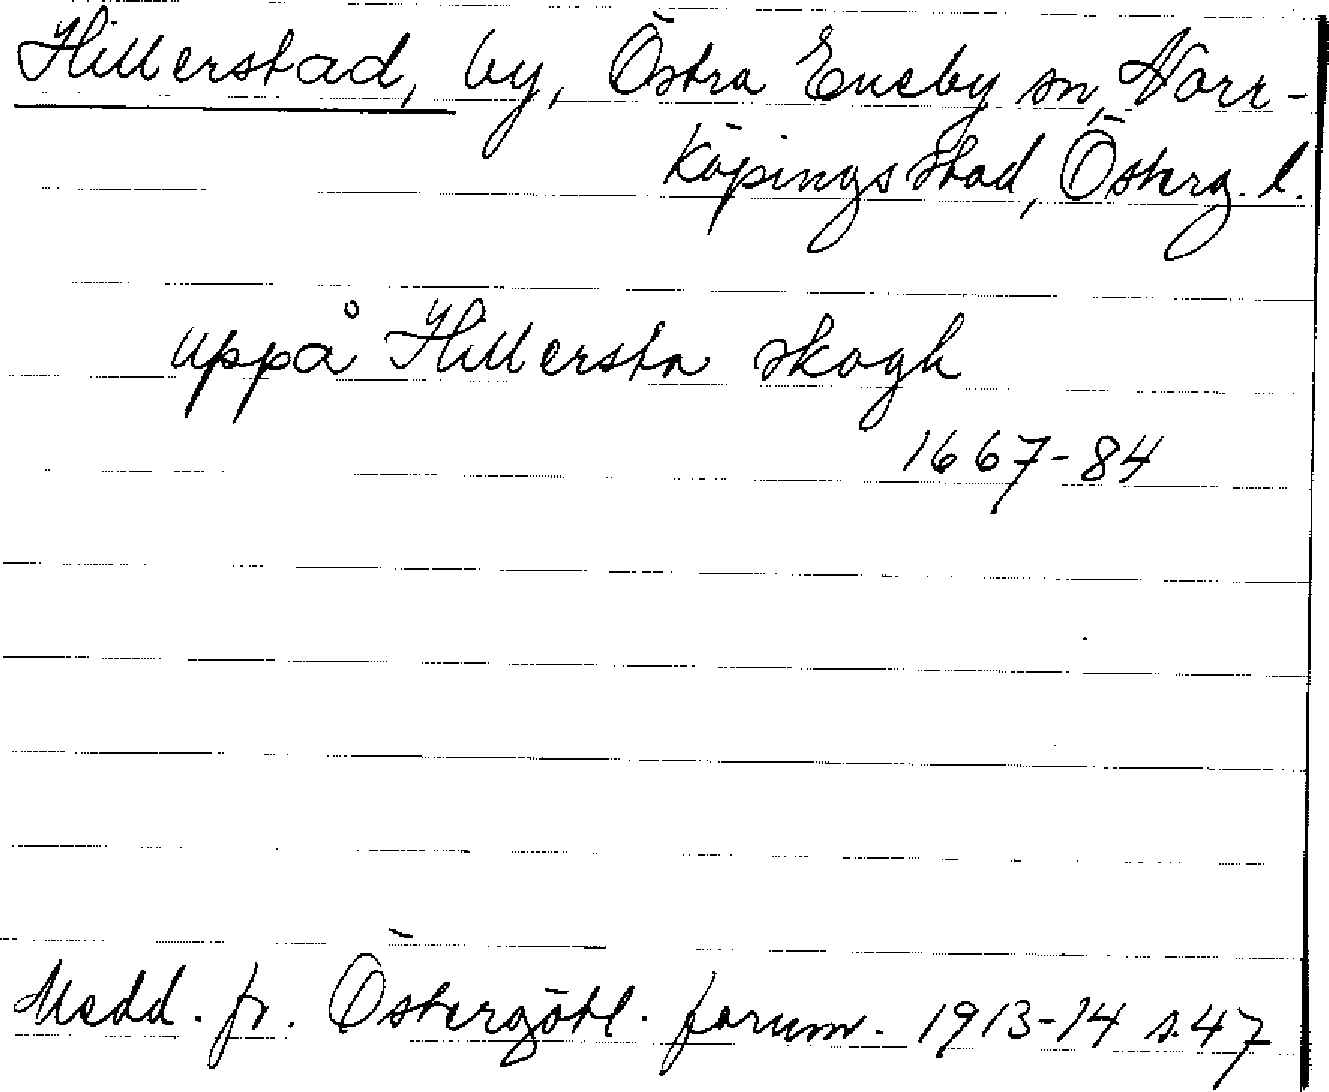 Hillerstad, by, Östra Eneby sn, Norr-
köpings stad, Österg. l.
uppå Hillersta skogh
1667-84
Medd. fr. Östergötl. fornm. 1913-14 s. 47